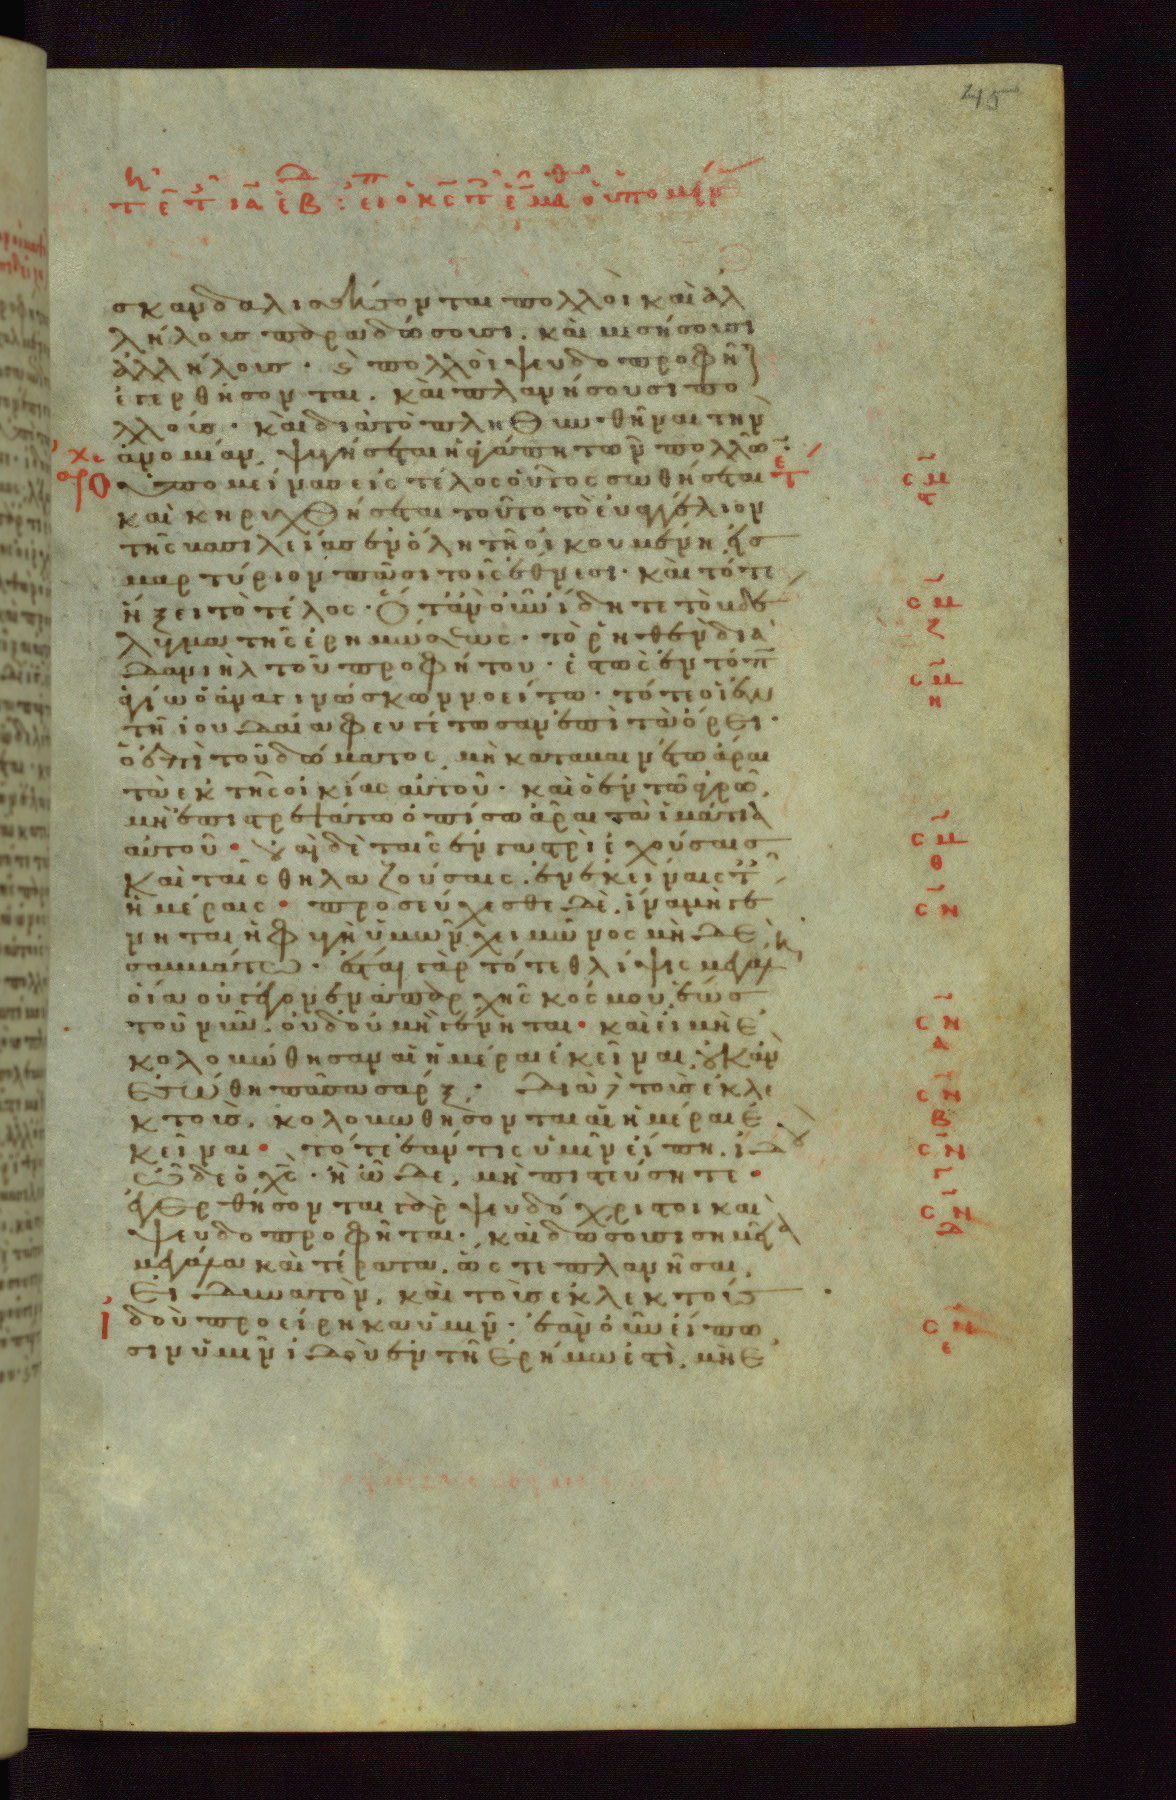 σκανδαλισθήσονται πολλοὶ καὶ ἀλ
λήλους παραδώσουσι. καὶ μισήσουσιν
ἀλλήλους. καὶ πολλοὶ ψευδοπροφῆται
ἐγερθήσονται. καὶ πλανήσουσι πο
λλούς. καὶ διὰ τὸ πληθυνθῆναι τὴν
ἀνομίαν, ψυγήσεται ἡ ἀγάπη τῶν πολλῶν.
Ὁ δὲ ὑπομείνας εἰς τέλος οὗτος σωθήσεται
καὶ κηρυχθήσεται τοῦτο τὸ εὐαγγέλιον
τῆς βασιλείας ἐν ὅλη τῆ οἰκουμένη εἰς
μαρτύριον πᾶσι τοῖς ἔθνεσι. καὶ τότε
ἥξει τὸ τέλος. Ὅταν οὖν ἴδητε τὸ βδέ
λυγμα τῆς ἐρημώσεως. τὸ ῥηθὲν διὰ
Δανιὴλ τοῦ προφήτου. ἑστὼς ἐν τόπω
ἁγίω ὁ ἀναγινώσκων νοείτω. τότε οἱ ἐν
τῆ ἰουδαία φευγέτωσαν ἐπὶ τὰ ὄρει.
ὁ ἐπὶ τοῦ δώματος, μὴ καταβαινέτω ἆραι
τὰ ἐκ τῆς οἰκίας αὐτοῦ. καὶ ὁ ἐν τῶ ἀγρῶ,
μὴ ἐπιστρεψάτω ὀπίσω ἆραι τὰ ἱμάτια
αὐτοῦ. οὐαὶ δὲ ταῖς ἐν γαστρὶ ἐχούσαις
καὶ ταῖς θηλαζούσαις. ἐν ἐκείναις ταῖς
ἡμέραις. προσεύχεσθε δὲ. ἵνα μὴ γέ
νηται ἡ φυγὴ ὑμῶν χειμῶνος μὴ δὲ
σαββάτω. ἔσται γὰρ τότε θλίψις μεγάλη
οἵα οὐ γέγονεν ἀπαρχῆς κόσμου, ἕως
τοῦ νῦν. οὐδοὺ μὴ γένηται. καὶ εἰ μὴ ἐ
κολοβώθησαν αἱ ἡμέραι ἐκεῖναι, οὐκ ἂν
ἐσώθη πᾶσα σάρξ. διὰ δὲ τοὺς ἐκλε
κτοὺς, κολοβωθήσονται αἱ ἡμέραι ἐ
κεῖναι. τότε ἐάν τις ὑμῖν εἴπη. ἰδοὺ
ὧδε ὁ χς. ἢ ὧδε, μὴ πιστεύσητε.
ἐγερθήσονται γὰρ ψευδόχριστοι καὶ
ψευδοπροφῆται. καὶ δώσουσι σημεῖα
μεγάλα καὶ τέρατα. ὥστε πλανῆσαι,
εἰ δυνατὸν, καὶ τοὺς ἐκλεκτούς
Ἰδοὺ προείρηκα ὑμῖν. ἐὰν οὖν εἴπω
σιν ὑμῖν ἰδοὺ ἐν τῆ ἐρήμω ἐστὶ. μὴ ἐ